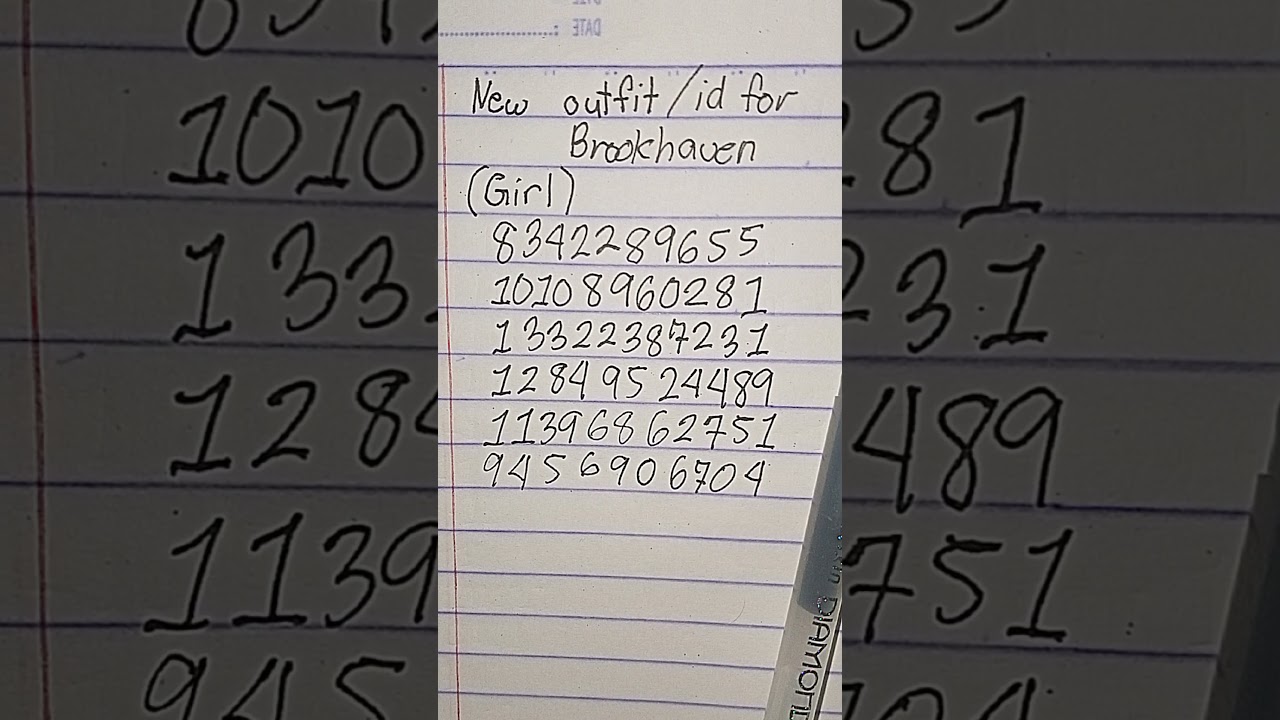 DATE :
New outfit/id for
Brookhaven
(Girl)
8342289655
10108960281
13322387231
12849524489
11396862751
9456906704
DIAMOND